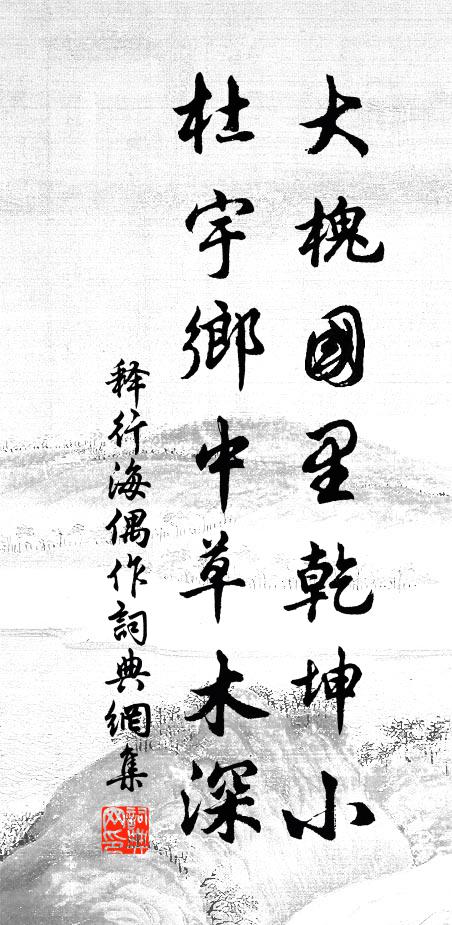 大槐國里乾坤小
杜宇鄉中草木深
释行海偶作詞典網集